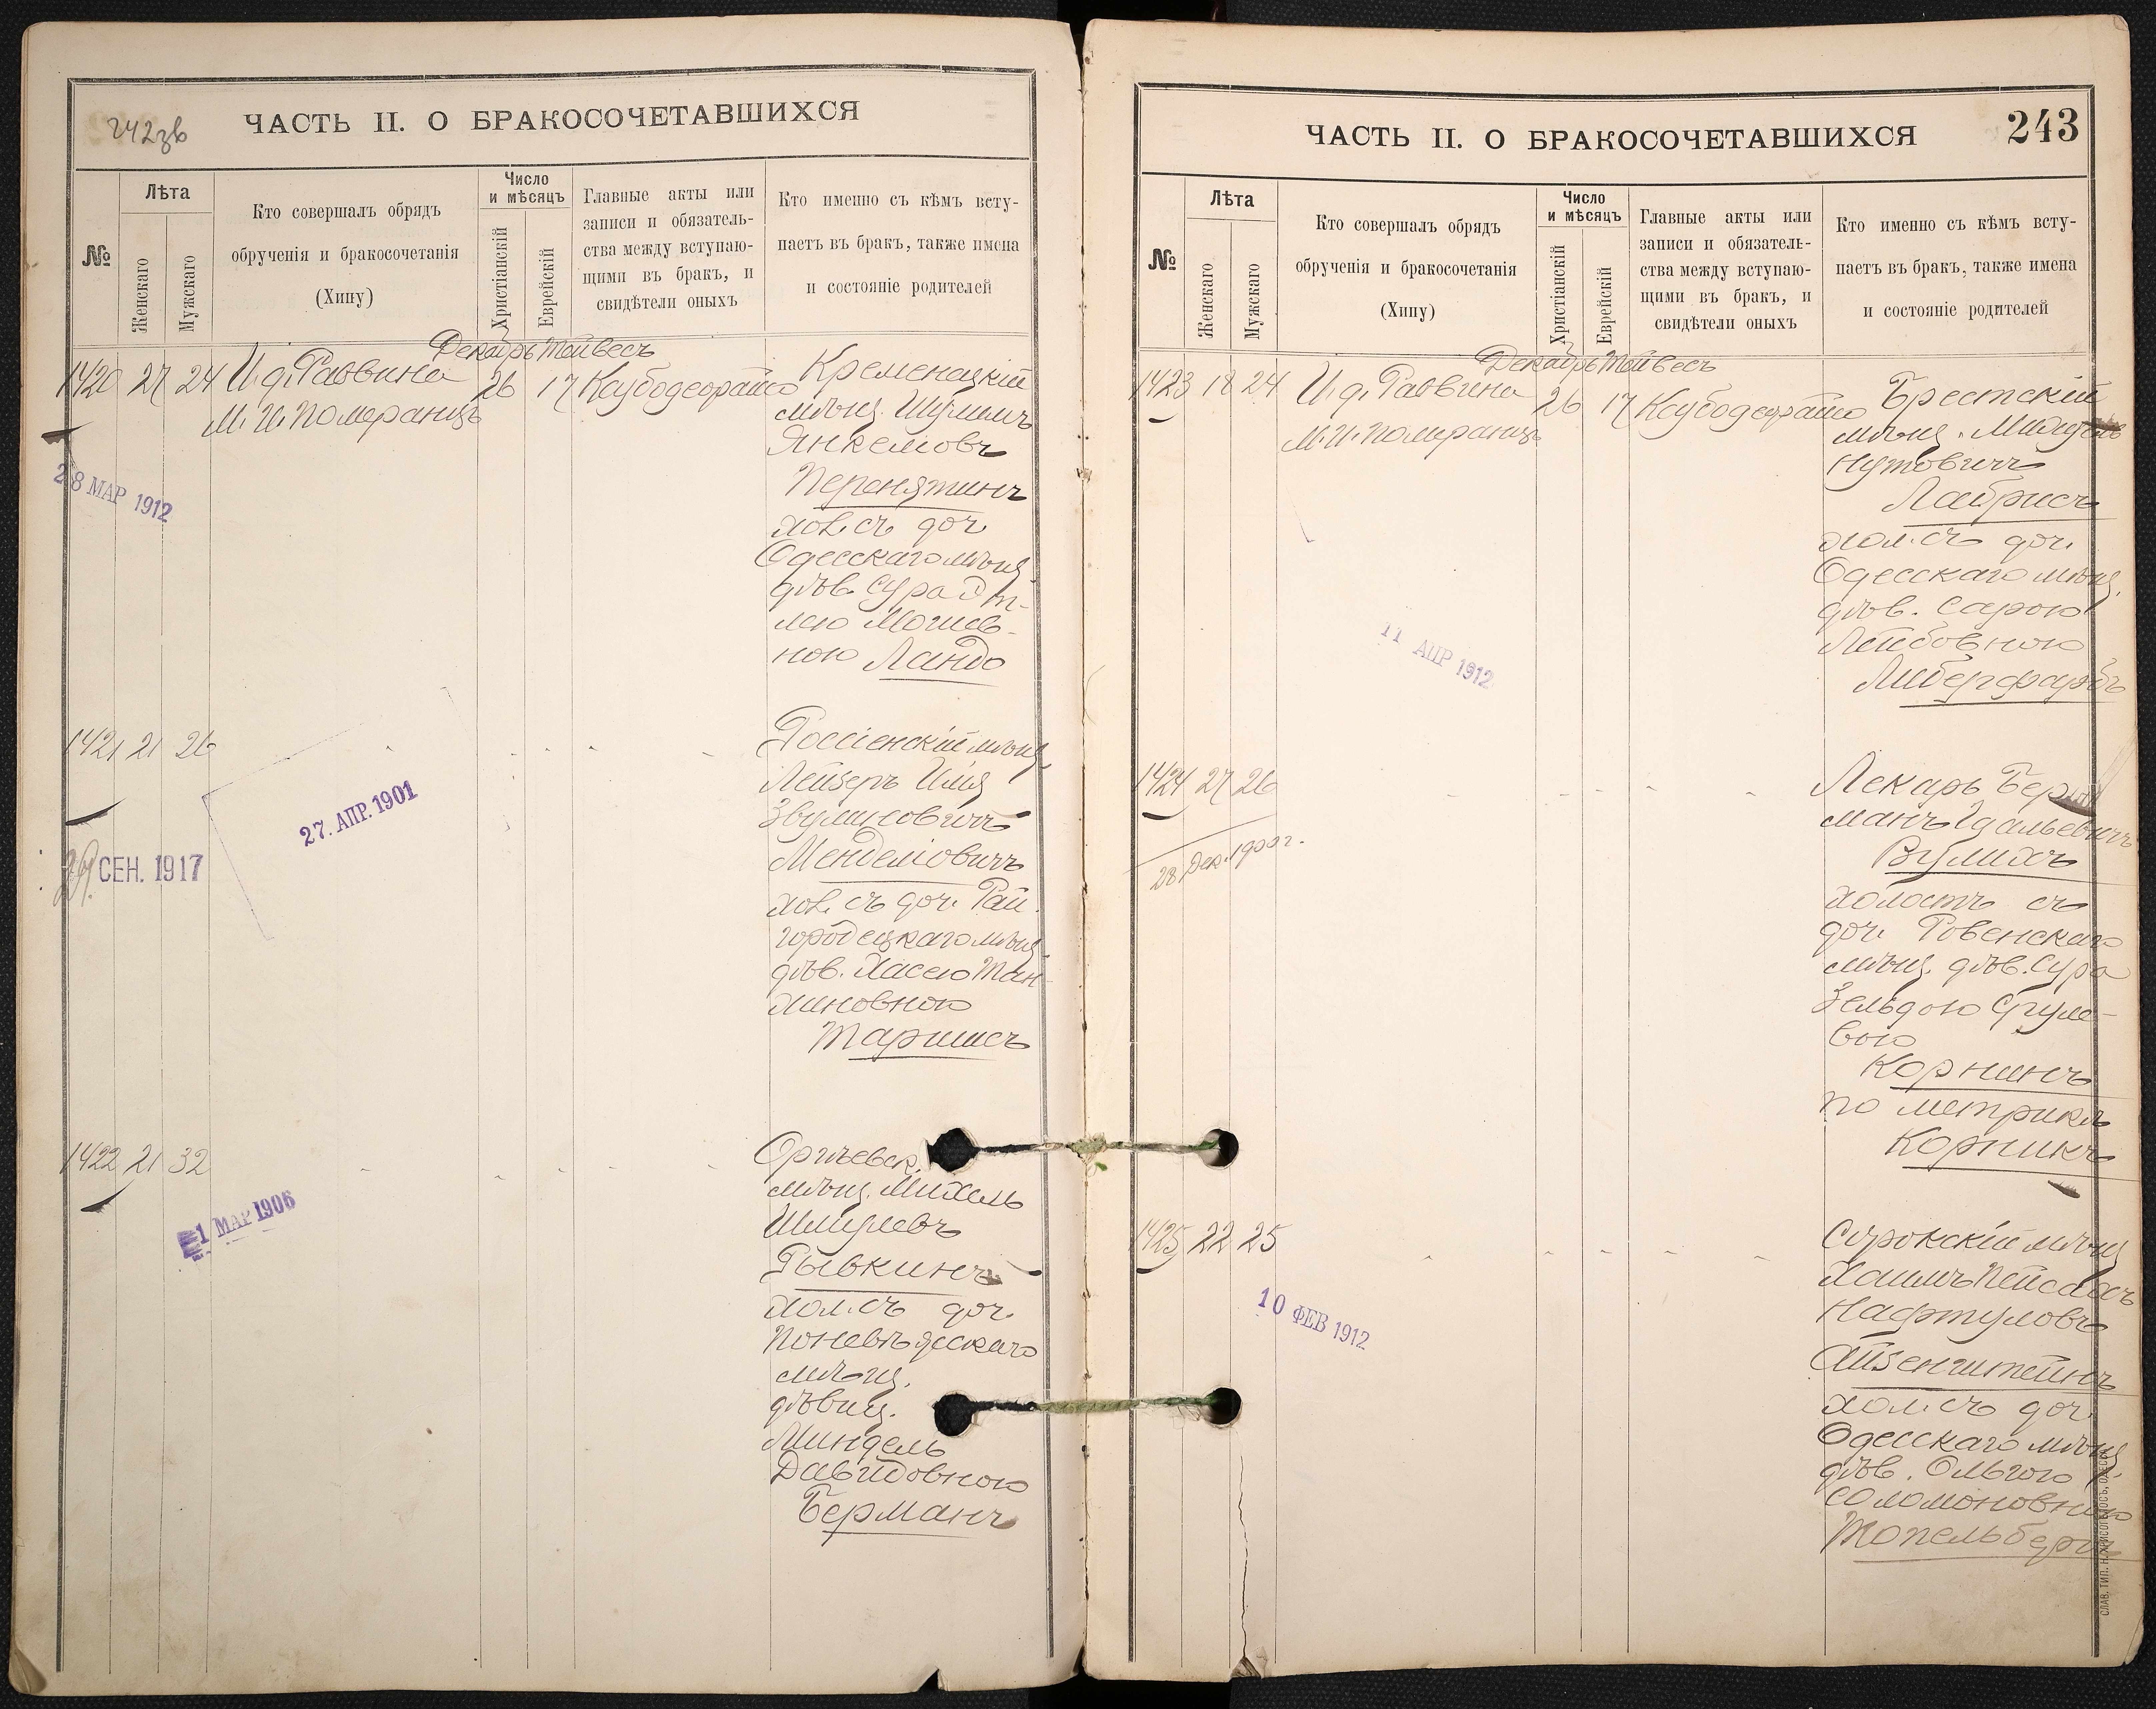 242зв
ЧАСТЬ II. О БРАКОСОЧЕТАВШИХСЯ
№
Лѣта
Женскаго
Мужскаго
Кто совершалъ обрядъ
обрученія и бракосочетанія
(Хипу)
Число
и мѣсяцъ
Христіанскій
Еврейскій
Главные акты или
записи и обязатель-
ства между вступаю-
щими въ бракъ, и
свидѣтели оныхъ
Кто именно съ кѣмъ всту-
паетъ въ бракъ, также имена
и состояніе родителей
Декабрь Тейвесъ
1420 27 24 И. д. Раввина 26 17
М. И. Померанцъ
Кременецкій
мѣщ. Шулимъ
Янкелювъ
Перенятинъ
хол. съ доч.
Одесскаго мѣщ.
дѣв. Сура Эт-
лею Мошков-
ною Ландо
28 МАР 1912
1421 21 26
Россіенскій мѣщ.
Лейзеръ Илія
Звулиновичъ
Менделювичъ
хол. съ доч. Рай-
городецкаго мѣщ.
дѣв. Хасею Тан-
хиновною
Таршисъ
27. АПР. 1901
СЕН. 1917
1422 21 32
Оргѣевск.
мѣщ. Михель
Шмулевъ
Рывкинъ
хол. съ доч.
Поневѣжскаго
мѣщ.
дѣвиц.
Миндель
Давидовною
Берманъ
1 МАР 1906
243
ЧАСТЬ II. О БРАКОСОЧЕТАВШИХСЯ
№
Лѣта
Женскаго
Мужскаго
Кто совершалъ обрядъ
обрученія и бракосочетанія
(Хипу)
Число
и мѣсяцъ
Христіанскій
Еврейскій
Главные акты или
записи и обязатель-
ства между вступаю-
щими въ бракъ, и
свидѣтели оныхъ
Кто именно съ кѣмъ всту-
паетъ въ бракъ, также имена
и состояніе родителей
Декабрь Тейвесъ
1423 18 24 И. д. Раввина 26 17
М. И. Померанцъ
Брестскій
мѣщ.
Нутовичъ
Лабрисъ
хол. съ доч.
Одесскаго мѣщ.
дѣв. Сарою
Лейбовною
Либерфарбъ
11 АПР 1912
1424 27 26
28 Дек. 1900 г.
Лекарь Бер-
манъ Идальевичъ
Вулихъ
холостъ съ
доч. Ровенскаго
мѣщ. дѣв. Сура
Зельдою Сруле-
вою
Корнинъ
по метрикѣ
Корникъ
1425 22 25
Сорокскій мѣщ.
Хаимъ Пейсахъ
Нафтуловъ
Айзенштейнъ
хол. съ доч.
Одесскаго мѣщ.
дѣв. Ольгою
Соломоновною
Топельбергъ
10 ФЕВ 1912
СЛАВ. ТИП. Н. ХРИСОГЕЛОСЪ, ОДЕССА